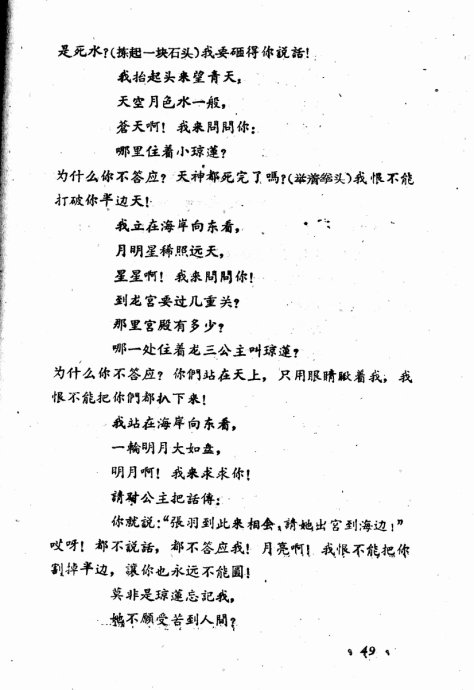 是死水?(拣起一块石头)我要砸得你説話!
我抬起头来望青天,
天空月色水一般,
蒼天啊! 我来問問你:
哪里住着小琼蓮?
为什么你不答应? 天神都死完了嗎?(举着拳头)我恨不能
打破你半边天!
我立在海岸向东看,
月明星稀照远天,
星星啊! 我来問問你!
到龙宫要过几重关?
那里宫殿有多少?
哪一处住着龙三公主叫琼蓮?
为什么你不答应? 你們站在天上, 只用眼睛瞅着我, 我
恨不能把你們都扒下来!
我站在海岸向东看,
一輪明月大如盘,
明月啊! 我来求求你!
請对公主把話传:
你就説:“張羽到此来相会,請她出宫到海边!”
哎呀! 都不説話, 都不答应我! 月亮啊! 我恨不能把你
割掉半边, 讓你也永远不能圓!
莫非是琼蓮忘記我,
她不願受苦到人間?
49